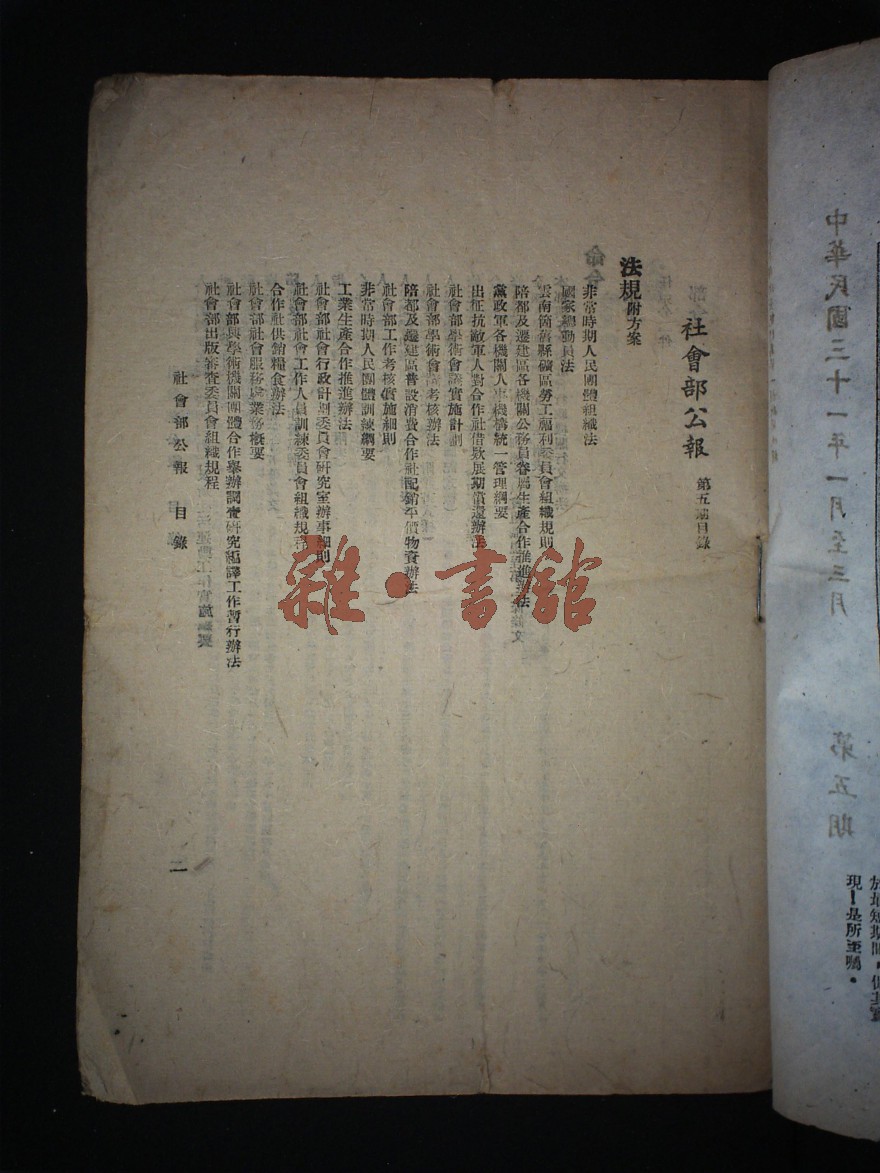 社會部公報
第五期目錄
法規附方案
非常時期人民團體組織法
國家總動員法
雲南箇舊縣礦區勞工福利委員會組織規則
陪都及遷建區各機關公務員眷屬生產合作推進辦法
黨政軍各機關人事機構統一管理綱要
出征抗敵軍人對合作社借款展期償還辦法
社會部學術會議實施計劃
社會部學術會議考核辦法
陪都及遷建區普設消費合作社配銷平價物資辦法
社會部工作考核實施細則
非常時期人民團體訓練綱要
工業生產合作推進辦法
社會部社會行政計劃委員會研究室辦事細則
社會部社會工作人員訓練委員會組織規程
合作社供銷糧食辦法
社會部社會服務處業務概要
社會部與學術機關團體合作舉辦調查研究編譯工作暫行辦法
社會部出版審查委員會組織規程
社會部公報 目錄
二
中華民國三十一年一月至三月 第五期
現！是所至囑。
雜·書館